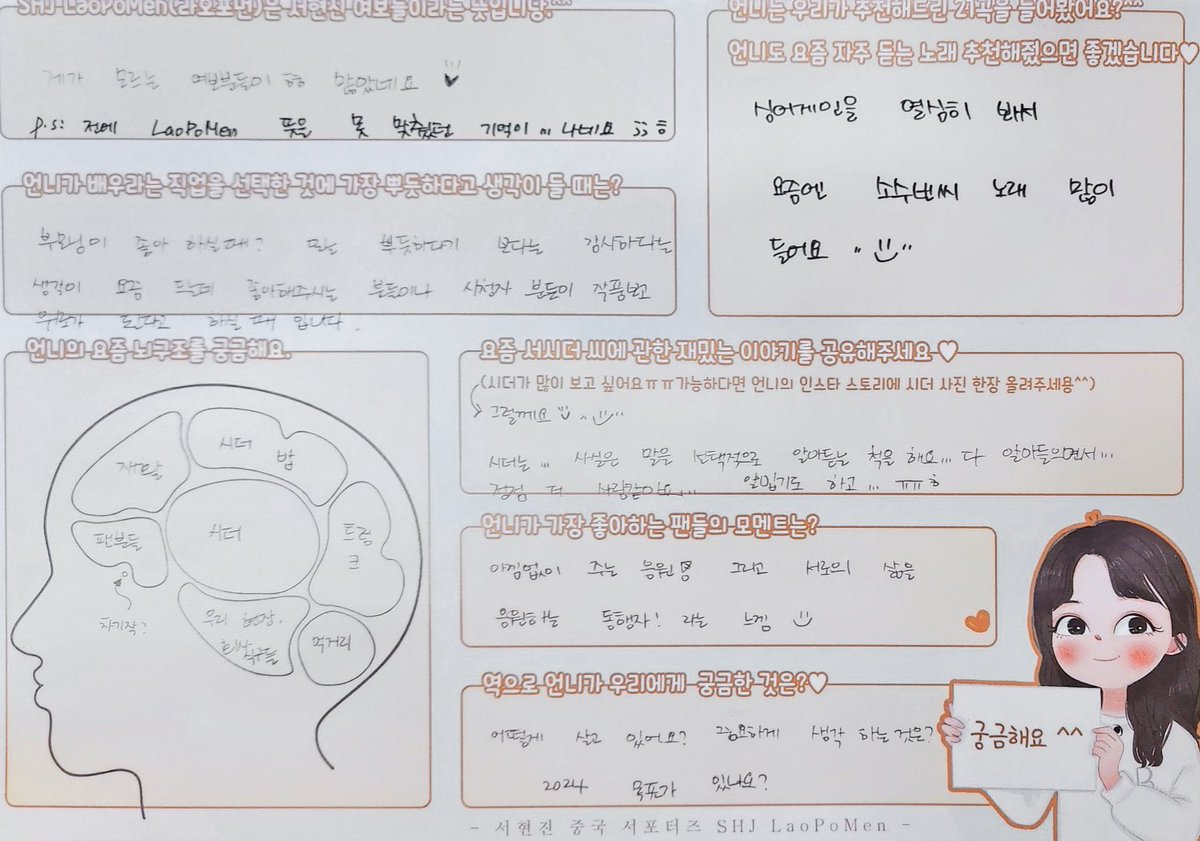 SHJ-LaoPoMen(라오포먼)은 서현진 여보들이라는 뜻입니당.^^
제가 모르는 여보분들이 많았네요
p.s: 전에 LaoPoMen 뜻을 못 맞췄던 기억이 ... 나네요 ;; ㅎ
언니가 배우라는 직업을 선택한 것에 가장 뿌듯하다고 생각이 들 때는?
부모님이 좋아 하실때? 또는 뿌듯하다기 보다는 감사하다는
생각이 요즘 드는데 좋아해주시는 분들이나 시청자 분들이 작품보고
위로가 된다고 하실 때 입니다.
언니의 요즘 뇌구조를 궁금해요.
재말
시더 밥
팬분들
시더
트렁
크
차기작?
우리 현장,
회사
식구들
먹거리
언니는 우리가 추천해드린 21곡을 들어봤어요?^^
언니도 요즘 자주 듣는 노래 추천해줬으면 좋겠습니다♥
싱어게인을 열심히 봐서
요즘엔 소수빈씨 노래 많이
들어요
요즘 서시더 씨에 관한 재밌는 이야기를 공유해주세요 ♥
(시더가 많이 보고 싶어요ㅠㅠ가능하다면 언니의 인스타 스토리에 시더 사진 한장 올려주세용^^)
그럴께요
시더는 ... 사실은 말을 선택적으로 알아듣는 척을 해요... 다 알아들으면서...
점점 더 사람같아요... 얄밉기도 하고 ... ㅠㅠㅎ
언니가 가장 좋아하는 팬들의 모멘트는?
아낌없이 주는 응원 그리고 서로의 삶을
응원하는 동행자! 라는 느낌
역으로 언니가 우리에게 궁금한 것은?♥
어떻게 살고 있어요? 중요하게 생각 하는것은?
2024 목표가 있나요?
궁금해요 ^^
- 서현진 중국 서포터즈 SHJ LaoPoMen -